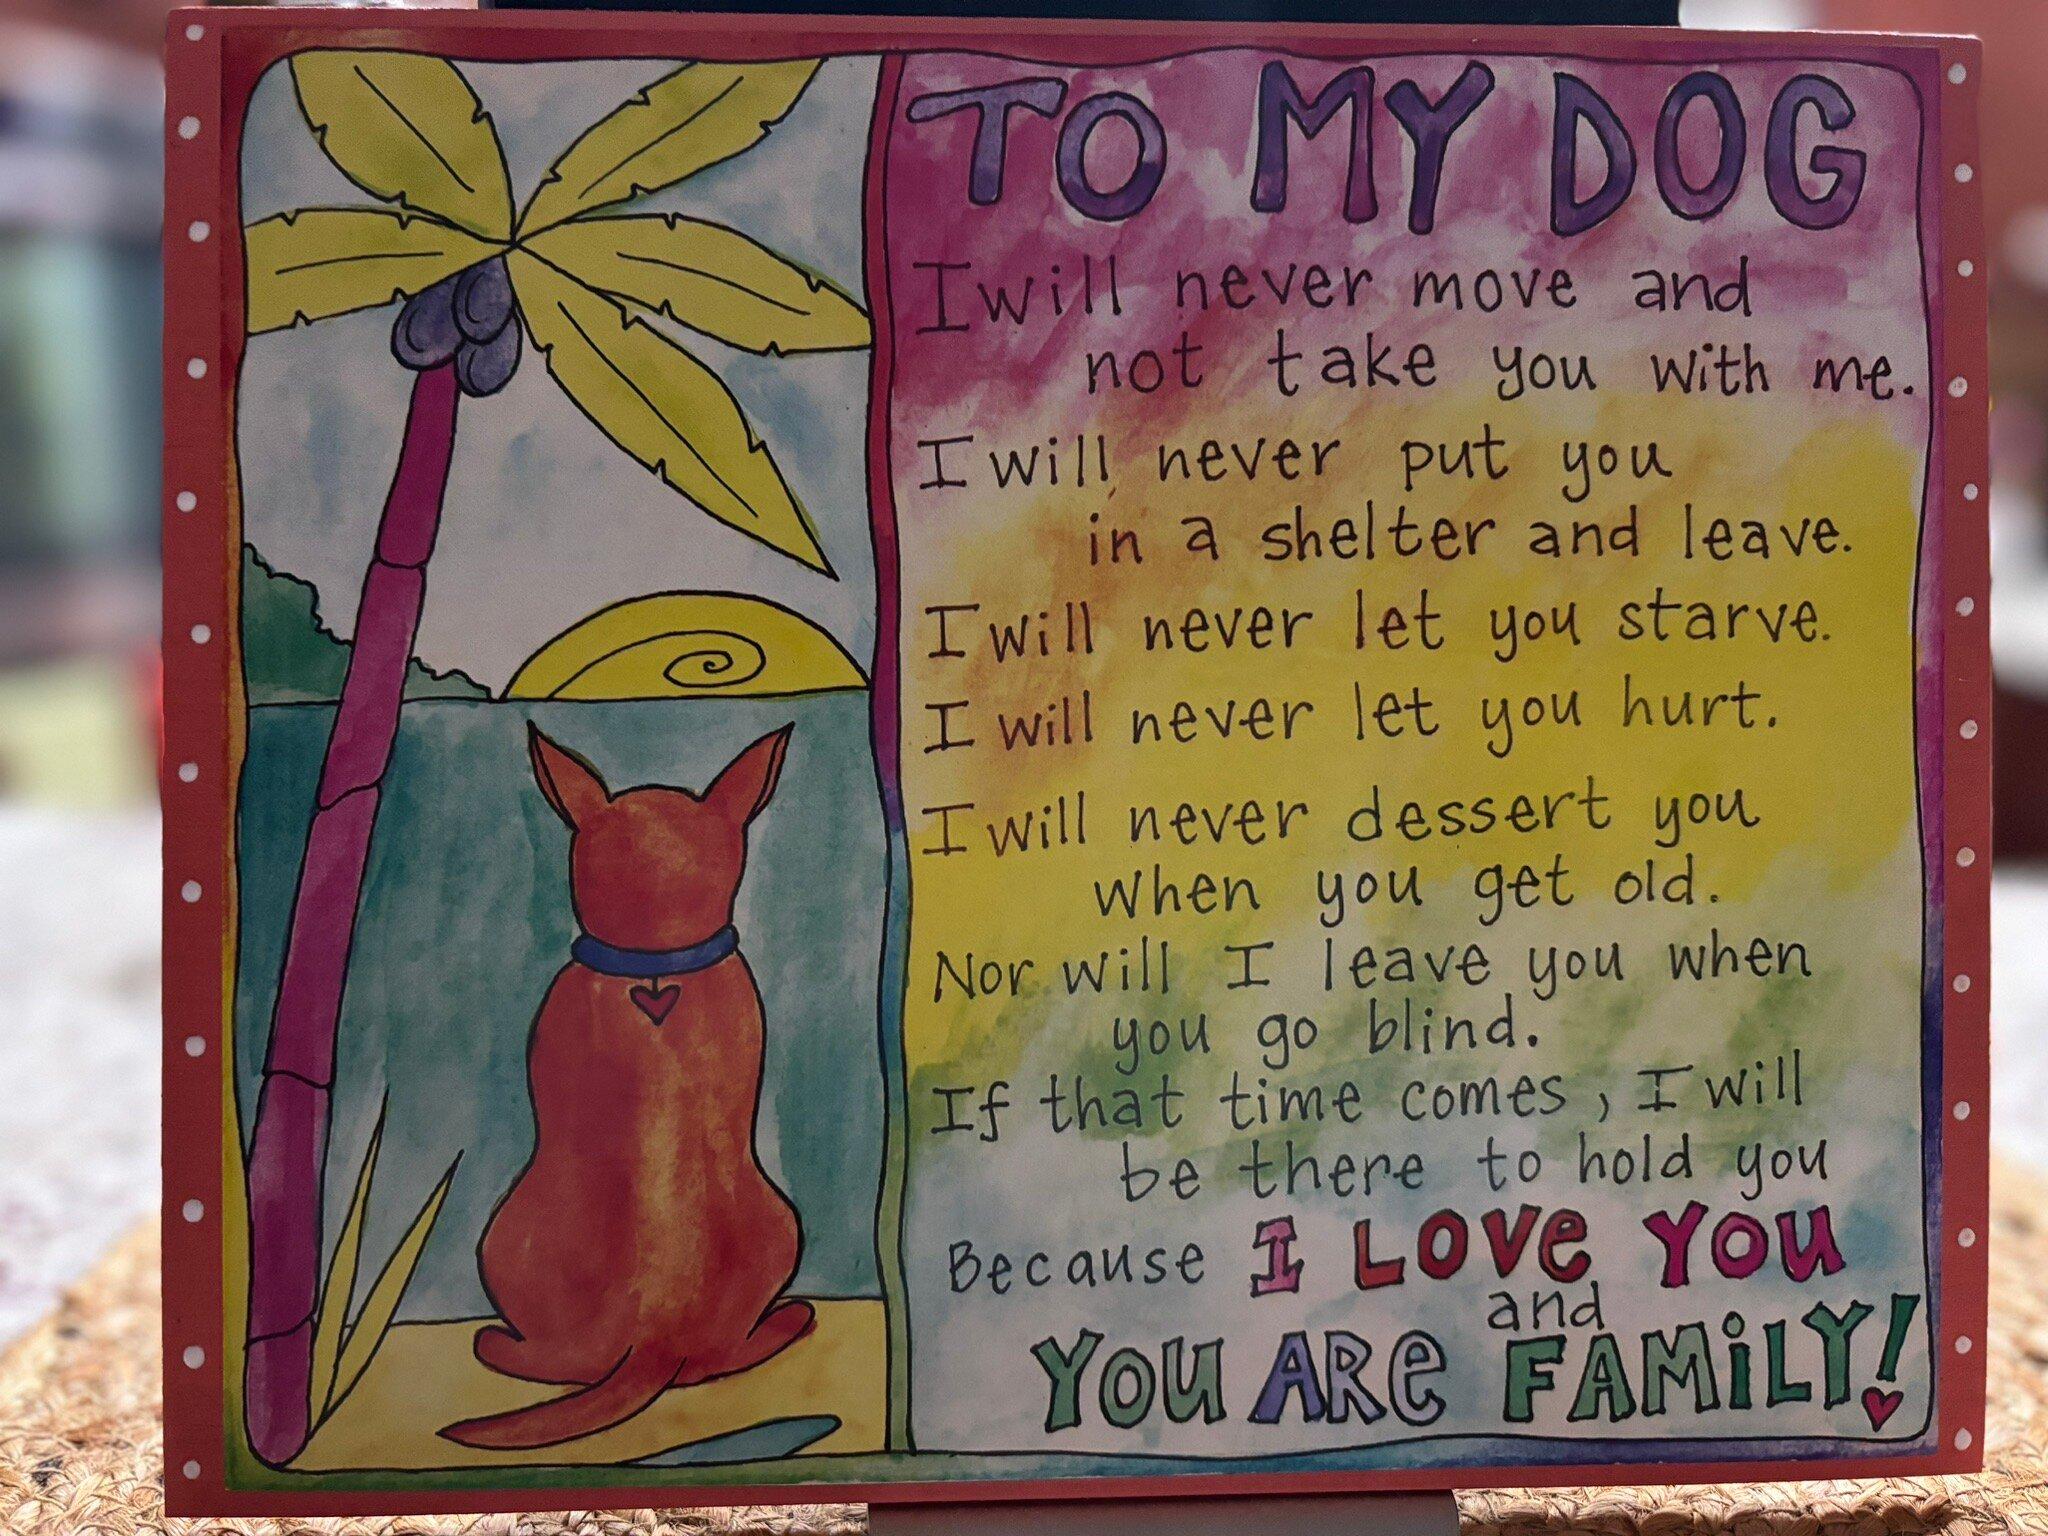 TO MY DOG
I will never move and
not take you with me.
I will never put you
in a shelter and leave.
I will never let you starve.
I will never let you hurt.
I will never dessert you
when you get old.
Nor will I leave you when
you go blind.
If that time comes, I will
be there to hold you
Because I LOVe YOU
and
YOU ARe FAMiLY!